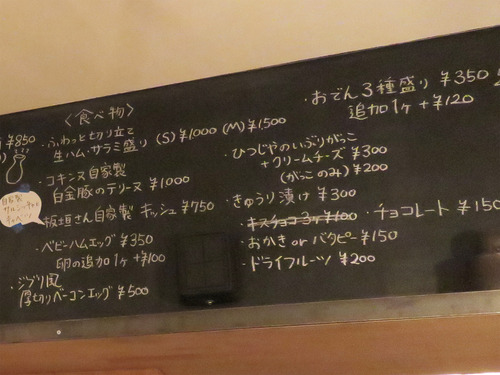 〈食べ物〉
¥850
・ふわっと切り立て
生ハム・サラミ盛り (S) ¥1,000 (M) ¥1,500
・コキンヌ自家製
白金豚のテリーヌ ¥1000
・板垣さん自家製 キッシュ ¥750
・ベビーハムエッグ ¥350
卵の追加1ヶ +¥100
・ジブリ風
厚切りベーコンエッグ ¥500
自家製
・おでん3種盛り ¥350
追加1ヶ +¥120
・ひつじやのいぶりがっこ
+クリームチーズ ¥300
(がっこのみ) ¥200
・きゅうり漬け ¥300
・キスチョコ3ヶ ¥100 ・チョコレート ¥150
・おかき or バタピー ¥150
・ドライフルーツ ¥200